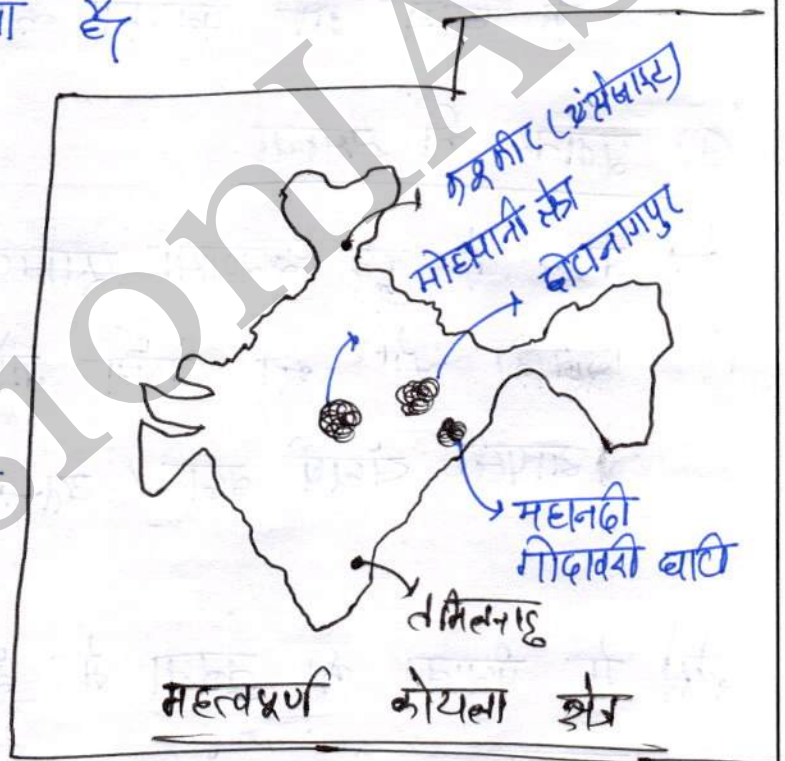 है
कश्मीर (एंथ्रेसाइट)
मोहपानी क्षेत्र
छोटानागपुर
महानदी
गोदावरी घाटी
तमिलनाडु
महत्वपूर्ण कोयला क्षेत्र